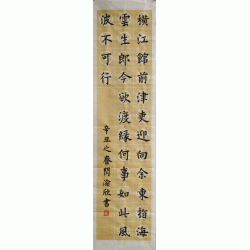 橫江館前津吏迎向余東指海
雲生郎今欲渡緣何事如此風
波不可行
辛丑之春閆渝欣書